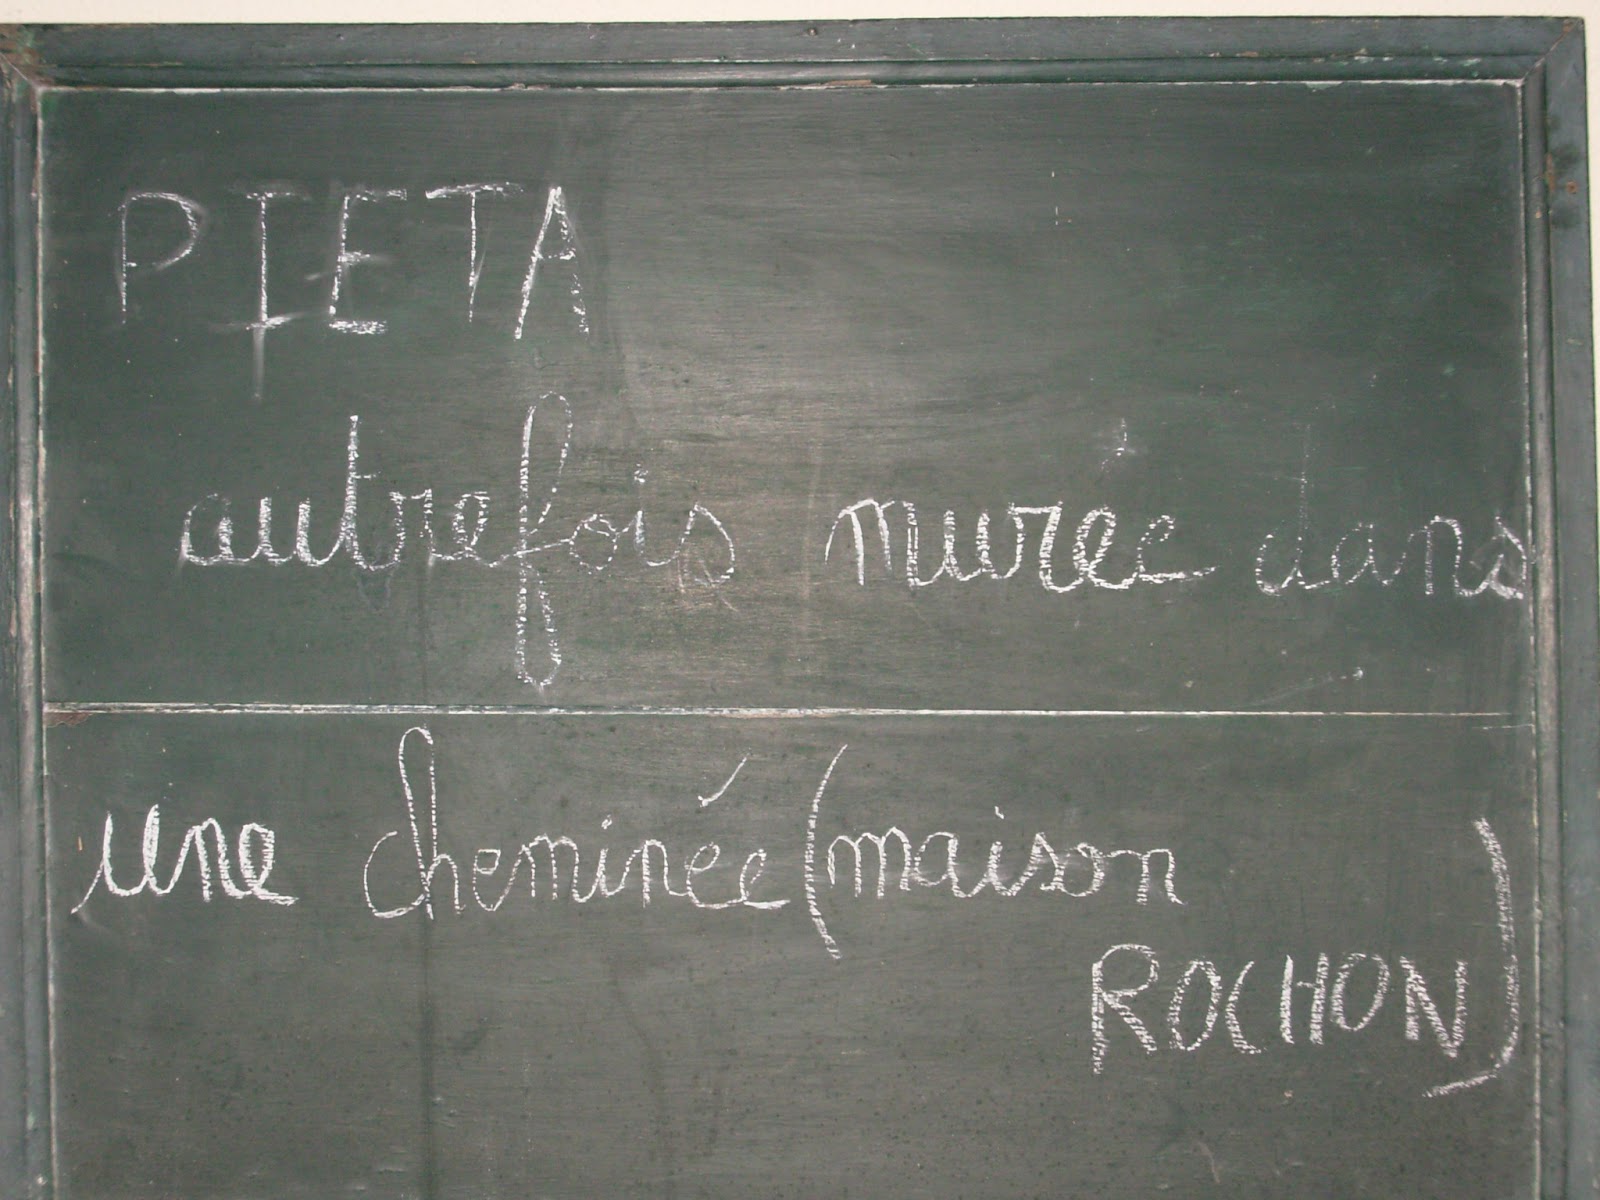 PIETA
autrefois murée dans
une cheminée (maison
ROCHON)